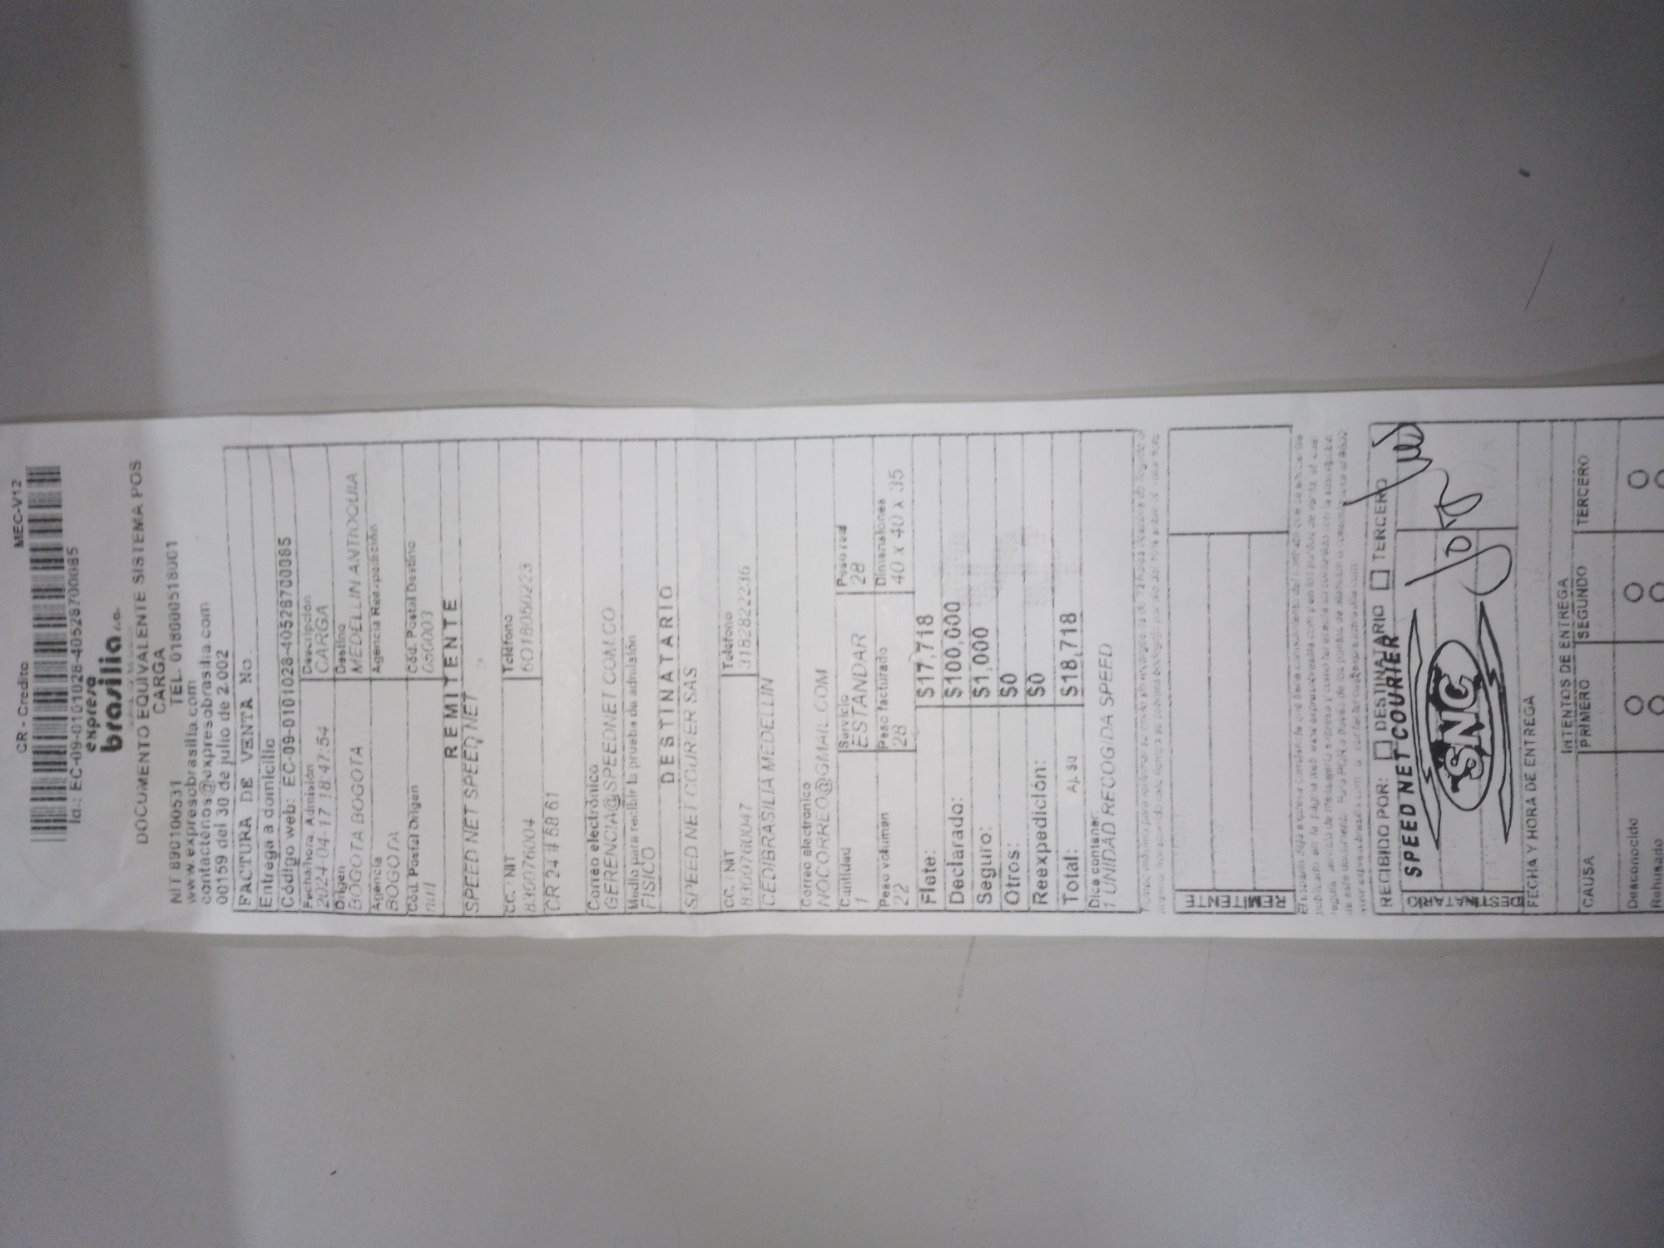 CR - Credito MEC-V12
Id.: EC-09-0101028-40528700085
expreso
brasilia s.a.
DOCUMENTO EQUIVALENTE SISTEMA POS
CARGA
NIT 890100531 TEL. 018000518001
www.expresobrasilia.com
contactenos@expresobrasilia.com
00159 del 30 de julio de 2.002
FACTURA DE VENTA No
Entrega a domicilio
Código web: EC-09-0101028-40528700085
Fecha/hora Admisión Descripción
2024-04-17 18:47:54 CARGA
Origen Destino
BOGOTA BOGOTA MEDELLIN ANTIOQUIA
Agencia Agencia Reexpedición
BOGOTA
Cód. Postal Origen Cód. Postal Destino
null 050003
REMITENTE
SPEED NET SPEED NET
CC. / NIT Teléfono
830076004 6018050223
CR 24 # 58 61
Correo electrónico
GERENCIA@SPEEDNET.COM.CO
Medio para recibir la prueba de admisión
FISICO
DESTINATARIO
SPEED NET COURIER SAS
CC. / NIT Teléfono
8300760047 3182822236
CEDIBRASILIA MEDELLIN
Correo electronico
NOCORREO@GMAIL.COM
Cantidad Servicio Peso real
1 ESTANDAR 28
Peso volumen Peso facturado Dimensiones
22 28 40 x 40 x 35
Flete: $17,718
Declarado: $100,000
Seguro: $1,000
Otros: $0
Reexpedición: $0
Total: Aj. $0 $18,718
Dice contener:
1 UNIDAD RECOG DA SPEED
REMITENTE
RECIBIDO POR: DESTINATARIO TERCERO
SPEED NET COURIER
SNC
DESTINATARIO
FECHA Y HORA DE ENTREGA
INTENTOS DE ENTREGA
CAUSA PRIMERO SEGUNDO TERCERO
Desconocido
Rehusado